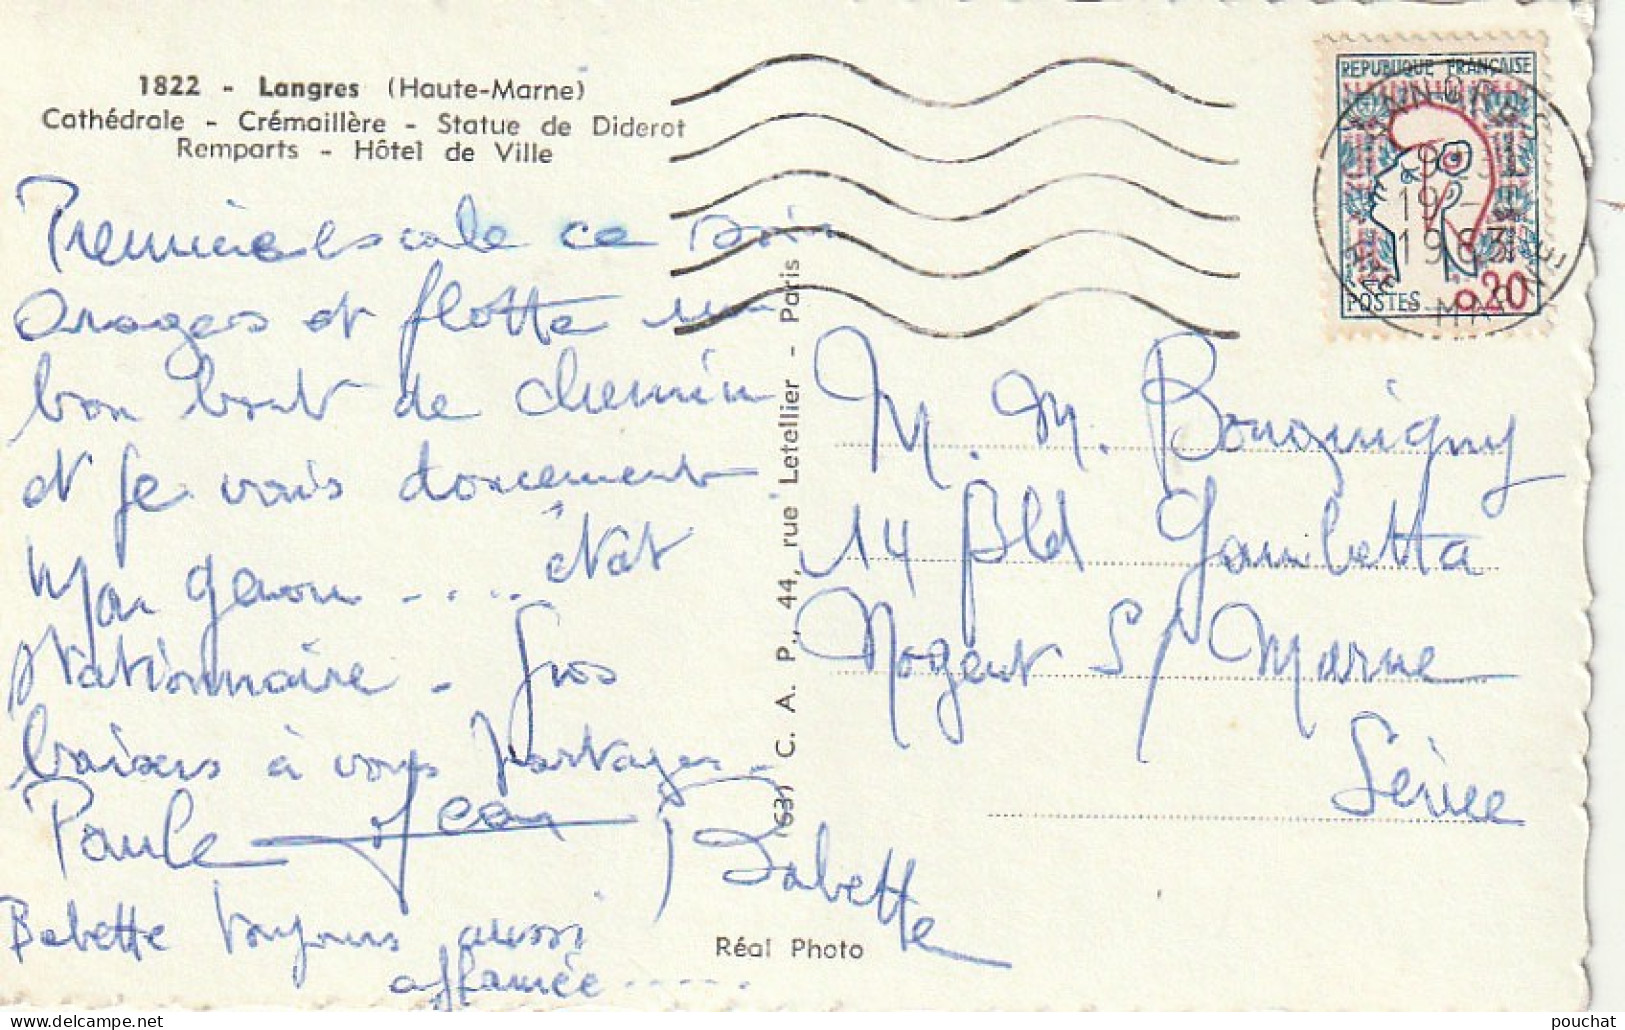 1822 - Langres (Haute-Marne)
Cathédrale - Crémaillère - Statue de Diderot
Remparts - Hôtel de Ville
Première escale ce soir
Orages et flotte un
bon bout de chemin
et je vais doucement
Mon genou ..... état
Stationnaire - Gros
baisers à vous partager -
Paule Jean Babette
Babette toujours aussi
affamée .....
(63) C. A. P., 44, rue Letellier - Paris
Réal Photo
REPUBLIQUE FRANÇAISE
POSTES 0,20
19 2
1963
M. M. Bouquigny
14 Bld Gambetta
Nogent S/ Marne
Seine
pouchat